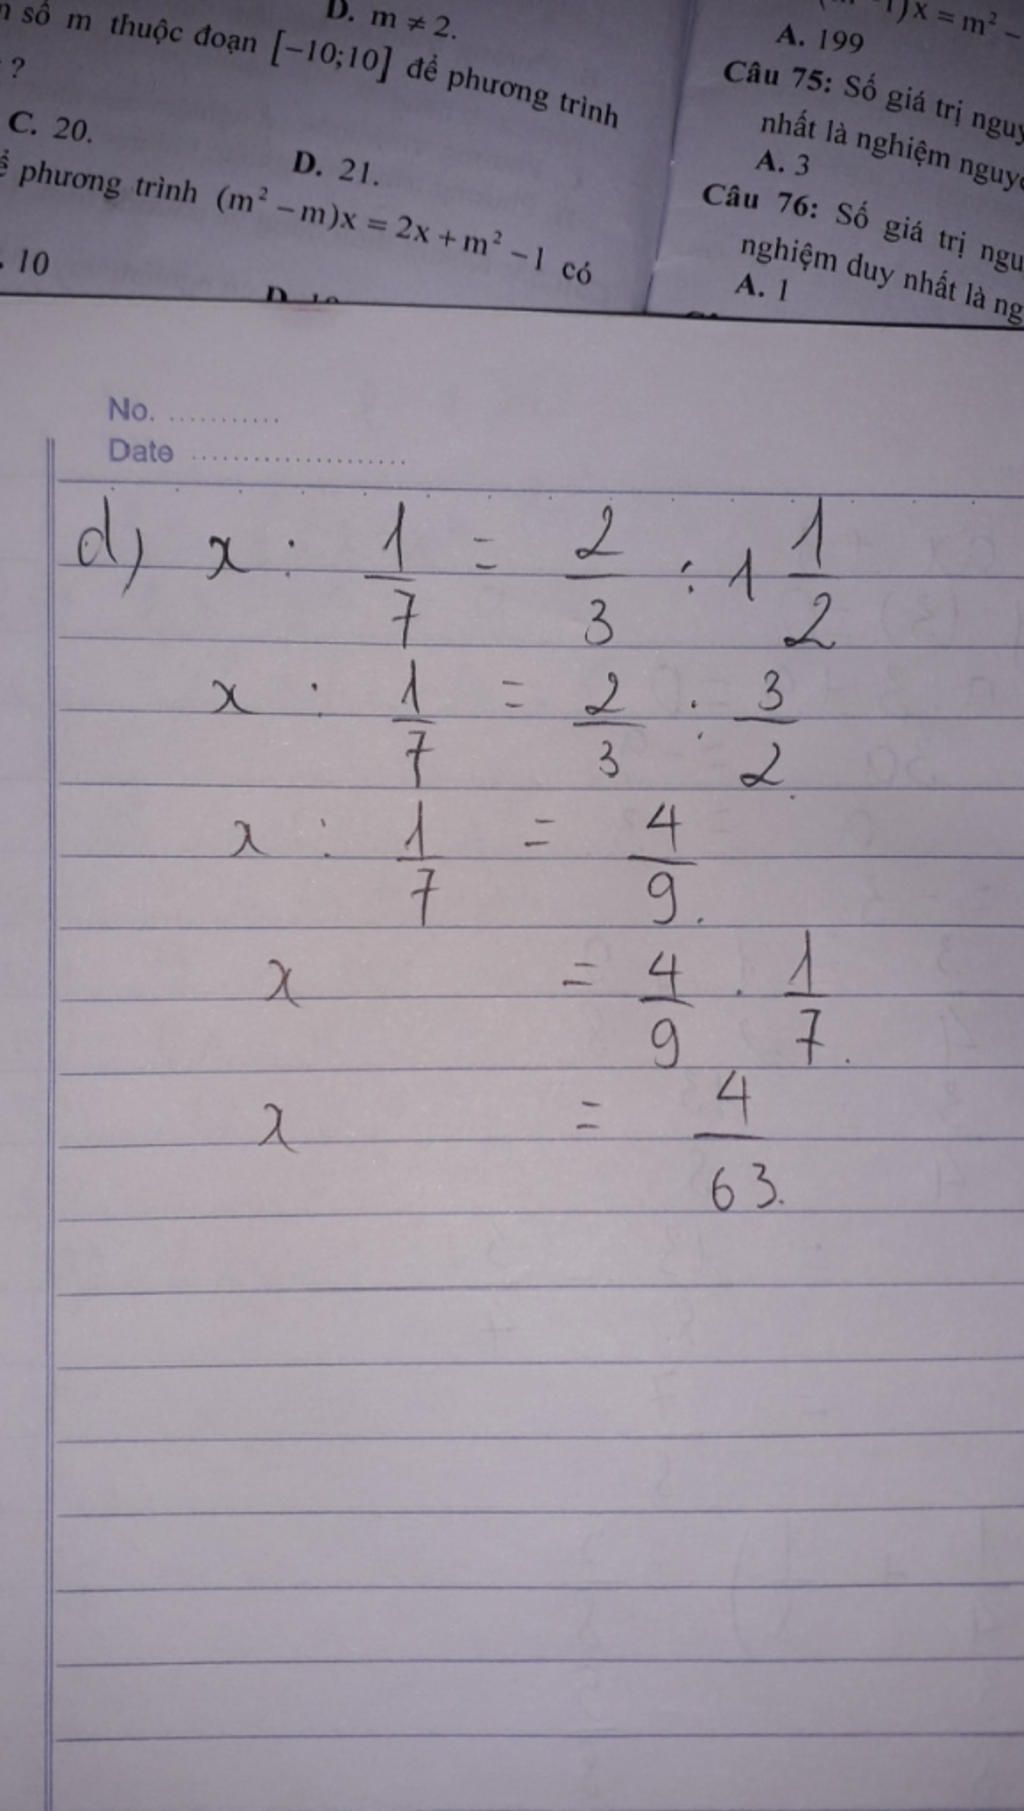 D. m ≠ 2.
số m thuộc đoạn [−10;10] để phương trình
?
C. 20.
D. 21.
phương trình (m² − m)x = 2x + m² − 1 có
10
1)x = m² −
A. 199
Câu 75: Số giá trị nguy
nhất là nghiệm nguyê
A. 3
Câu 76: Số giá trị ngu
nghiệm duy nhất là ng
A. 1
No. ...........
Date ......................
d) x : 1/7 = 2/3 : 1 1/2
x : 1/7 = 2/3 : 3/2.
x : 1/7 = 4/9.
x = 4/9 . 1/7.
x = 4/63.